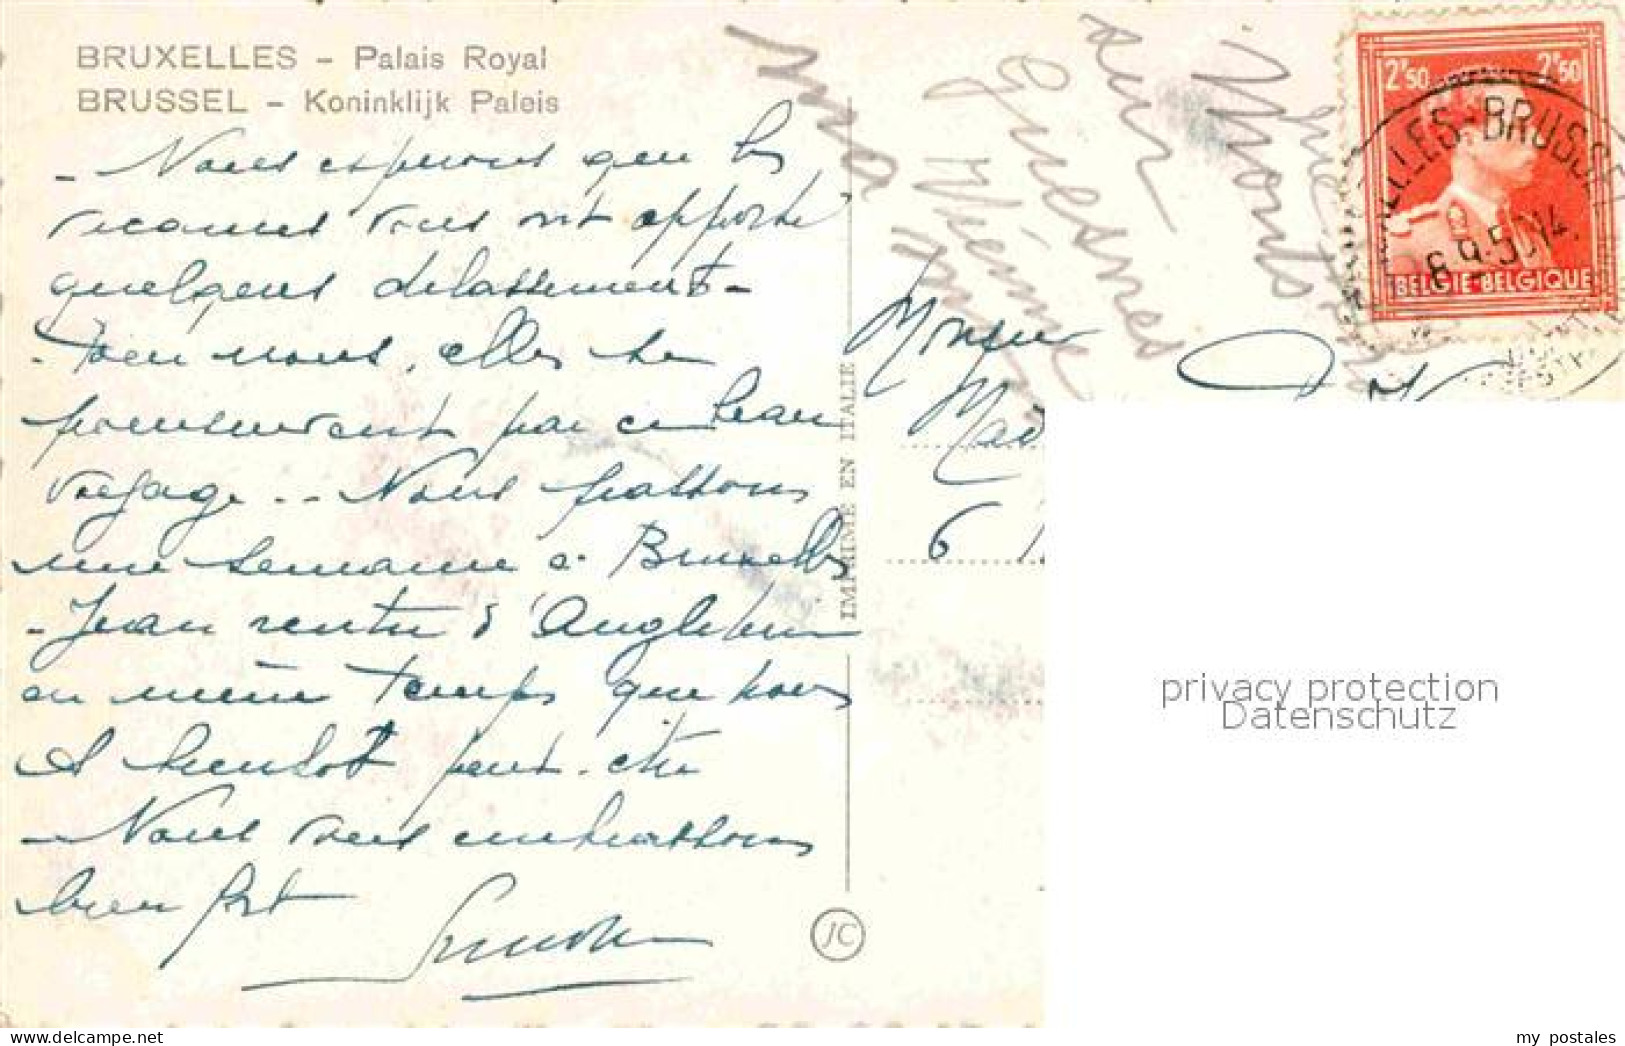 BRUXELLES - Palais Royal
BRUSSEL - Koninklijk Paleis
- Nous espérons que les
vacances vous ont apporté
quelques délassements -
- Pour nous, elles se
poursuivent par ce beau
voyage .. - Nous passons
une semaine à Bruxelles
- Jean rentre d'Angleterre
en même temps que nous
A bientôt peut-être
- Nous vous embrassons
bien fort
IMPRIME EN ITALIE
JC
sur
Guesnes
Vienne
Monts
Monsieur
Mad
6
2F50 2F50
BELGIE-BELGIQUE
ELLES-BRUSSEL
privacy protection
Datenschutz
my postales